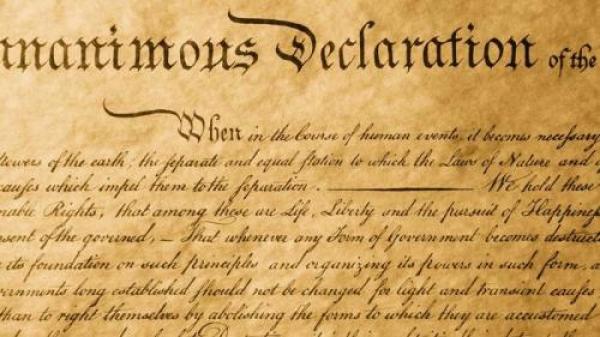 nanimous Declaration of the
When in the Course of human events, it becomes necessary
powers of the earth, the separate and equal station to which the Laws of Nature and of
causes which impel them to the separation. ——— We hold these
nable Rights, that among these are Life, Liberty and the pursuit of Happiness
sent of the governed, — That whenever any Form of Government becomes destruct
its foundation on such principles and organizing its powers in such form, a
vernments long established should not be changed for light and transient causes
than to right themselves by abolishing the forms to which they are accustomed